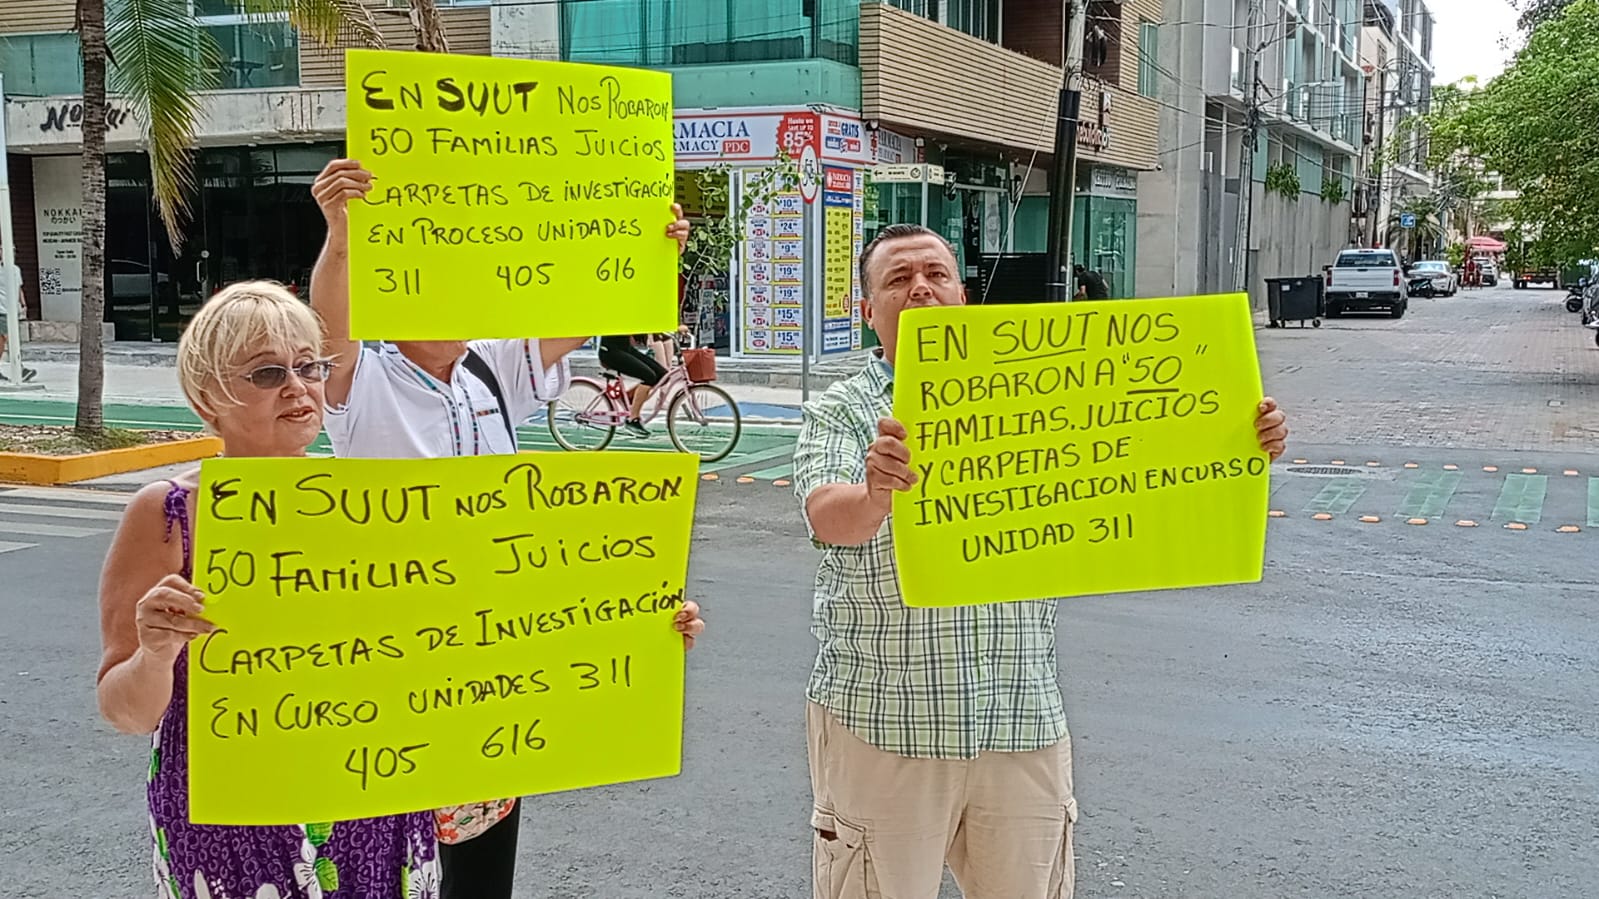 EN SUUT NOS ROBARON
50 FAMILIAS JUICIOS
CARPETAS DE INVESTIGACIÓN
EN PROCESO UNIDADES
311 405 616
EN SUUT NOS ROBARON
50 FAMILIAS JUICIOS
CARPETAS DE INVESTIGACIÓN
EN CURSO UNIDADES 311
405 616
EN SUUT NOS
ROBARON A "50"
FAMILIAS, JUICIOS
Y CARPETAS DE
INVESTIGACION EN CURSO
UNIDAD 311
RMACIA
RMACY PDC
SAVE UP TO
85%
GRATIS
FARMACIA
NOKKAI